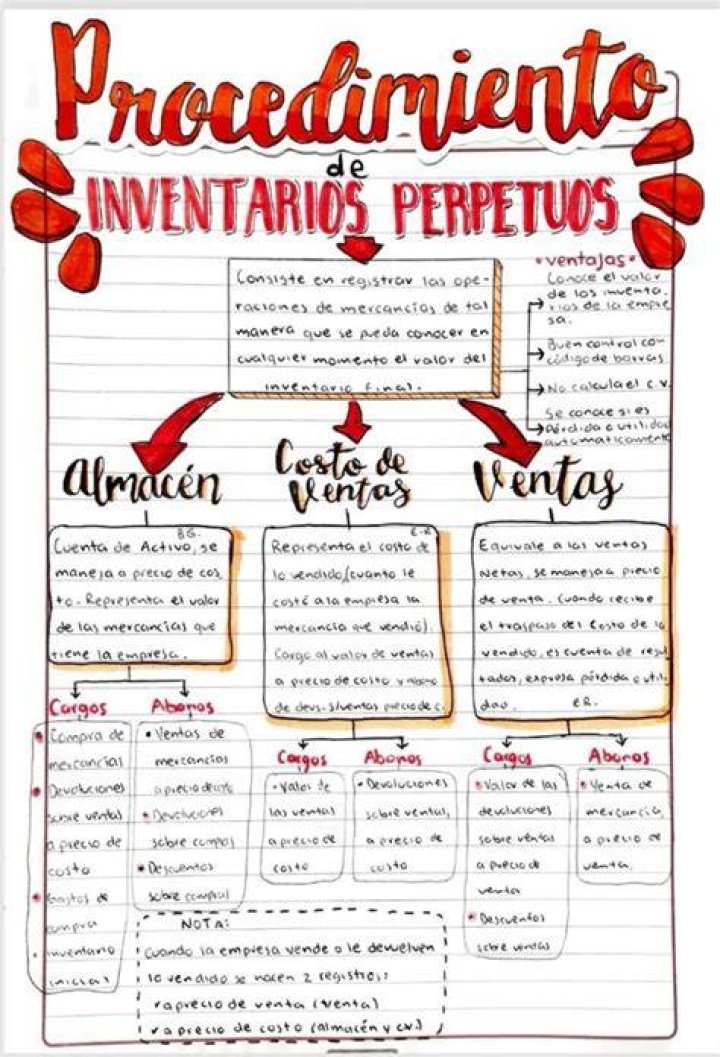 Procedimiento
de
INVENTARIOS PERPETUOS
Consiste en registrar las ope-
raciones de mercancías de tal
manera que se pueda conocer en
cualquier momento el valor del
inventario final.
•ventajas•
Conoce el valor
de los inventa.
rios de la empre
sa.
Buen control con
código de barras
No calcula el c.v.
Se conoce si es
Pérdida o utilidad
automaticamente
Almacén
B.G.
Cuenta de Activo, se
maneja a precio de cos
to. Representa el valor
de las mercancías que
tiene la empresa.
Cargos
• Compra de
mercancías
• Devoluciones
sobre ventas
a precio de
costo
• Gastos de
compra
• inventario
inicial
Abonos
• Ventas de
mercancías
a precio de costo
• Devoluciones
sobre compras
• Descuentos
sobre compras
Costo de
Ventas
E.R
Representa el costo de
lo vendido (cuanto le
costó a la empresa la
mercancía que vendió).
Cargo al valor de ventas
a precio de costo y abono
de devs. s/ventas precio de c.
Cargos
• Valor de
las ventas
a precio de
costo
Abonos
• Devoluciones
sobre ventas,
a precio de
costo
Ventas
Equivale a las ventas
Netas, se maneja a precio
de venta. Cuando recibe
el traspaso del Costo de lo
vendido, es cuenta de resul
tados, expresa pérdida o utili
dad. E.R.
Cargos
• Valor de las
devoluciones
sobre ventas
a precio de
venta
• Descuentos
sobre ventas
Abonos
• Venta de
mercancía
a precio de
venta.
NOTA:
Cuando la empresa vende o le devuelven
lo vendido se hacen 2 registros:
✓ a precio de venta (venta)
✓ a precio de costo (almacén y c.v.)